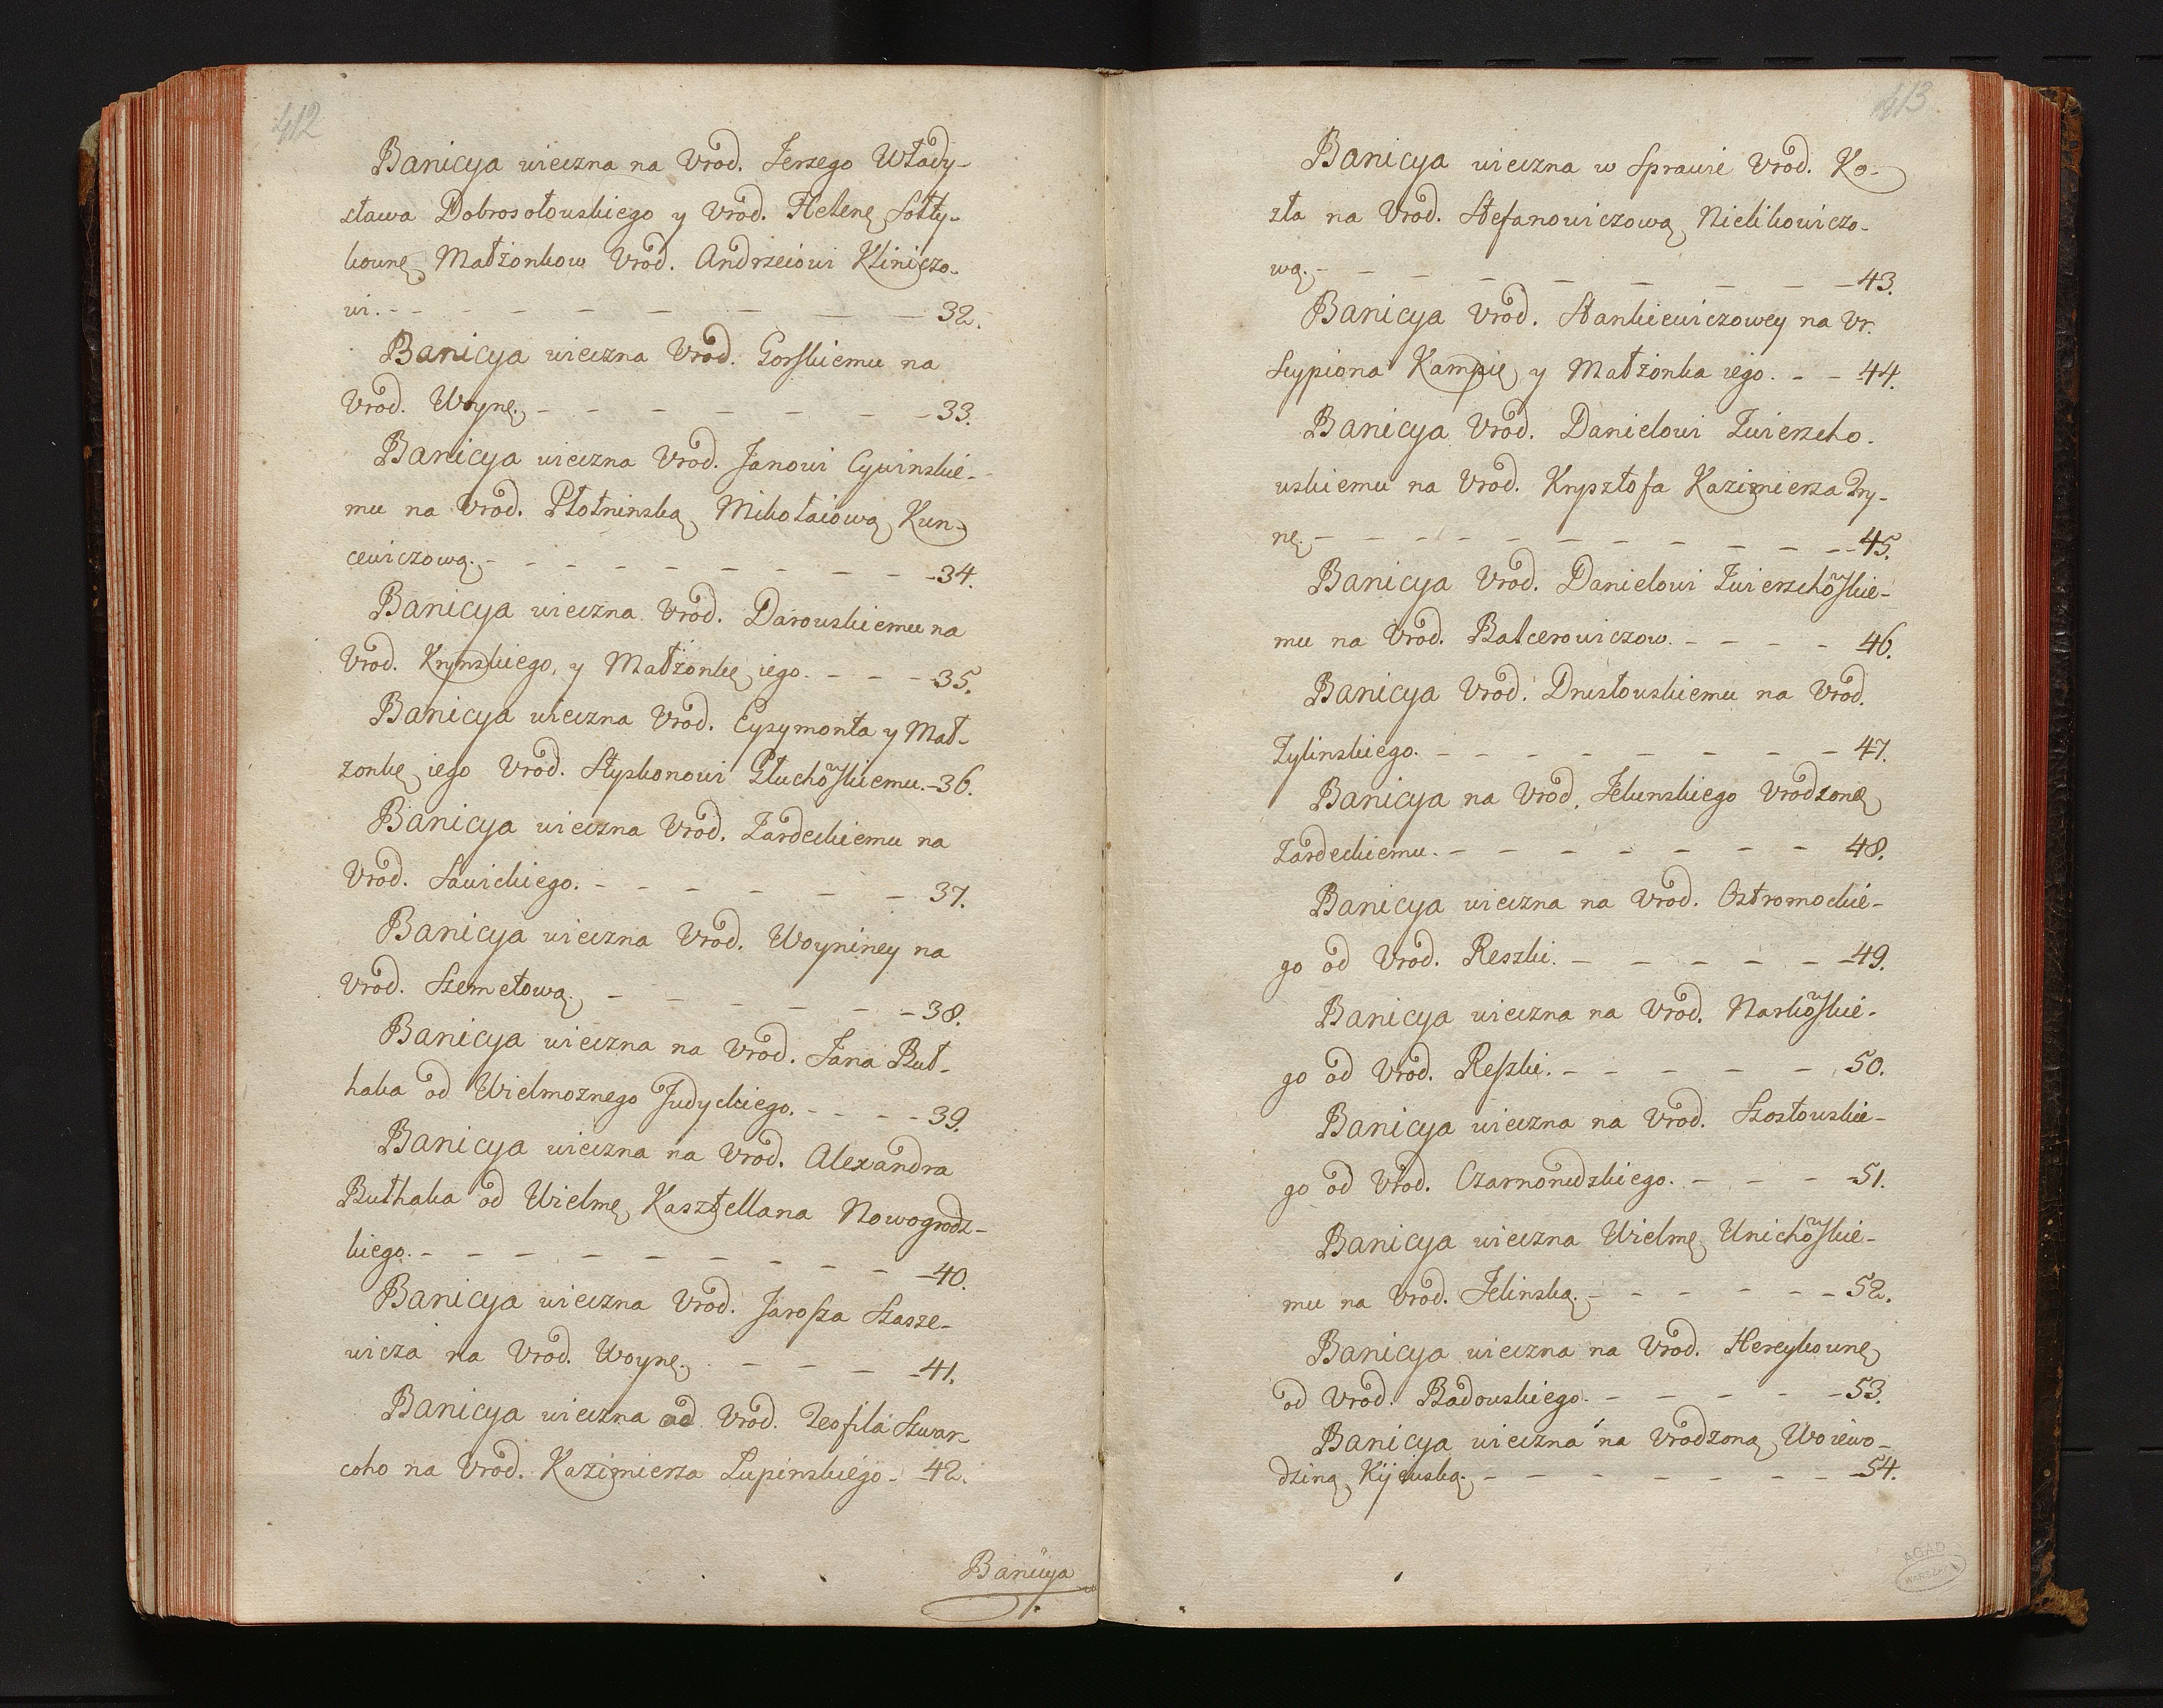 412
Banicya wieczna na Vrod. Jerzego Włady-
sława Dobrosołowskiego y Vrod. Helenę Sołty-
kownę Małżonkow Vrod. Andrzeiowi Kliniczo-
wi. 32.
Banicya wieczna Vrod. Gorskiemu na
Vrod. Woynę. 33.
Banicya wieczna Vrod. Janowi Cywinskie-
mu na Vrod. Płotninską Mikołaiową Kun-
cewiczową. 34.
Banicya wieczna Vrod. Darowskiemu na
Vrod. Krynskiego, y Małżonkę iego. 35.
Banicya wieczna Vrod. Eysymonta y Mał-
zonkę iego Vrod. Styphonowi Głuchowskiemu. 36.
Banicya wieczna Vrod. Zardeckiemu na
Vrod. Sawickiego. 37.
Banicya wieczna Vrod. Woyniney na
Vrod. Szemetową. 38.
Banicya wieczna na Vrod. Jana Buł-
haka od Wielmoznego Judyckiego. 39.
Banicya wieczna na Vrod. Alexandra
Bułhaka od Wielmę Kasztellana Nowogrodz-
kiego. 40.
Banicya wieczna Vrod. Jarosza Staszе-
wicza na Vrod. Woynę. 41.
Banicya wieczna od Vrod. Teofila Szwar-
coho na Vrod. Kazimierza Łupinskiego. 42.
Banicya
413
Banicya wieczna w Sprawie Vrod. Ko-
zła na Vrod. Stefanowiczową Nielikowiczo-
wą. 43.
Banicya Vrod. Stankiewiczowey na Vr.
Scypiona Kampię y Małżonka iego. 44.
Banicya Vrod. Danielowi Zwierzcho-
wskiemu na Vrod. Krysztofa Kazimierza Try-
nę. 45.
Banicya Vrod. Danielowi Zwierzchowskie-
mu na Vrod. Balcerowiczow. 46.
Banicya Vrod. Dructowskiemu na Vrod.
Zylinskiego. 47.
Banicya na Vrod. Jelenskiego Vrodzonę
Zardeckiemu. 48.
Banicya wieczna na Vrod. Ostromeckie-
go od Vrod. Reszki. 49.
Banicya wieczna na Vrod. Narkowskie-
go od Vrod. Reszki. 50.
Banicya wieczna na Vrod. Szostowskie-
go od Vrod. Czarnorudzkiego. 51.
Banicya wieczna Wielmę Unichowskie-
mu na Vrod. Jelinską. 52.
Banicya wieczna na Vrod. Hercykownę
od Vrod. Badowskiego. 53.
Banicya wieczna na Vrodzoną Woiewo-
dziną Kijewską. 54.
AGAD
WARSZAWA